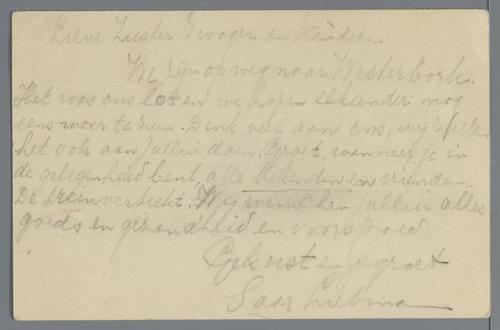 Lieve Zuster Zwager en Kinderen
We zijn op weg naar Westerbork.
Het was ons lot en we hopen elkander nog
eens weer te zien. Denk veel aan ons, wij zullen
het ook aan jullie doen. Groet, wanneer je in
de gelegenheid bent, alle bekenten en vrienden.
De trein vertrekt. Wij wenschen jullie alles
goeds en gezondheid en voorspoed
Gekust en gegroet
Saar